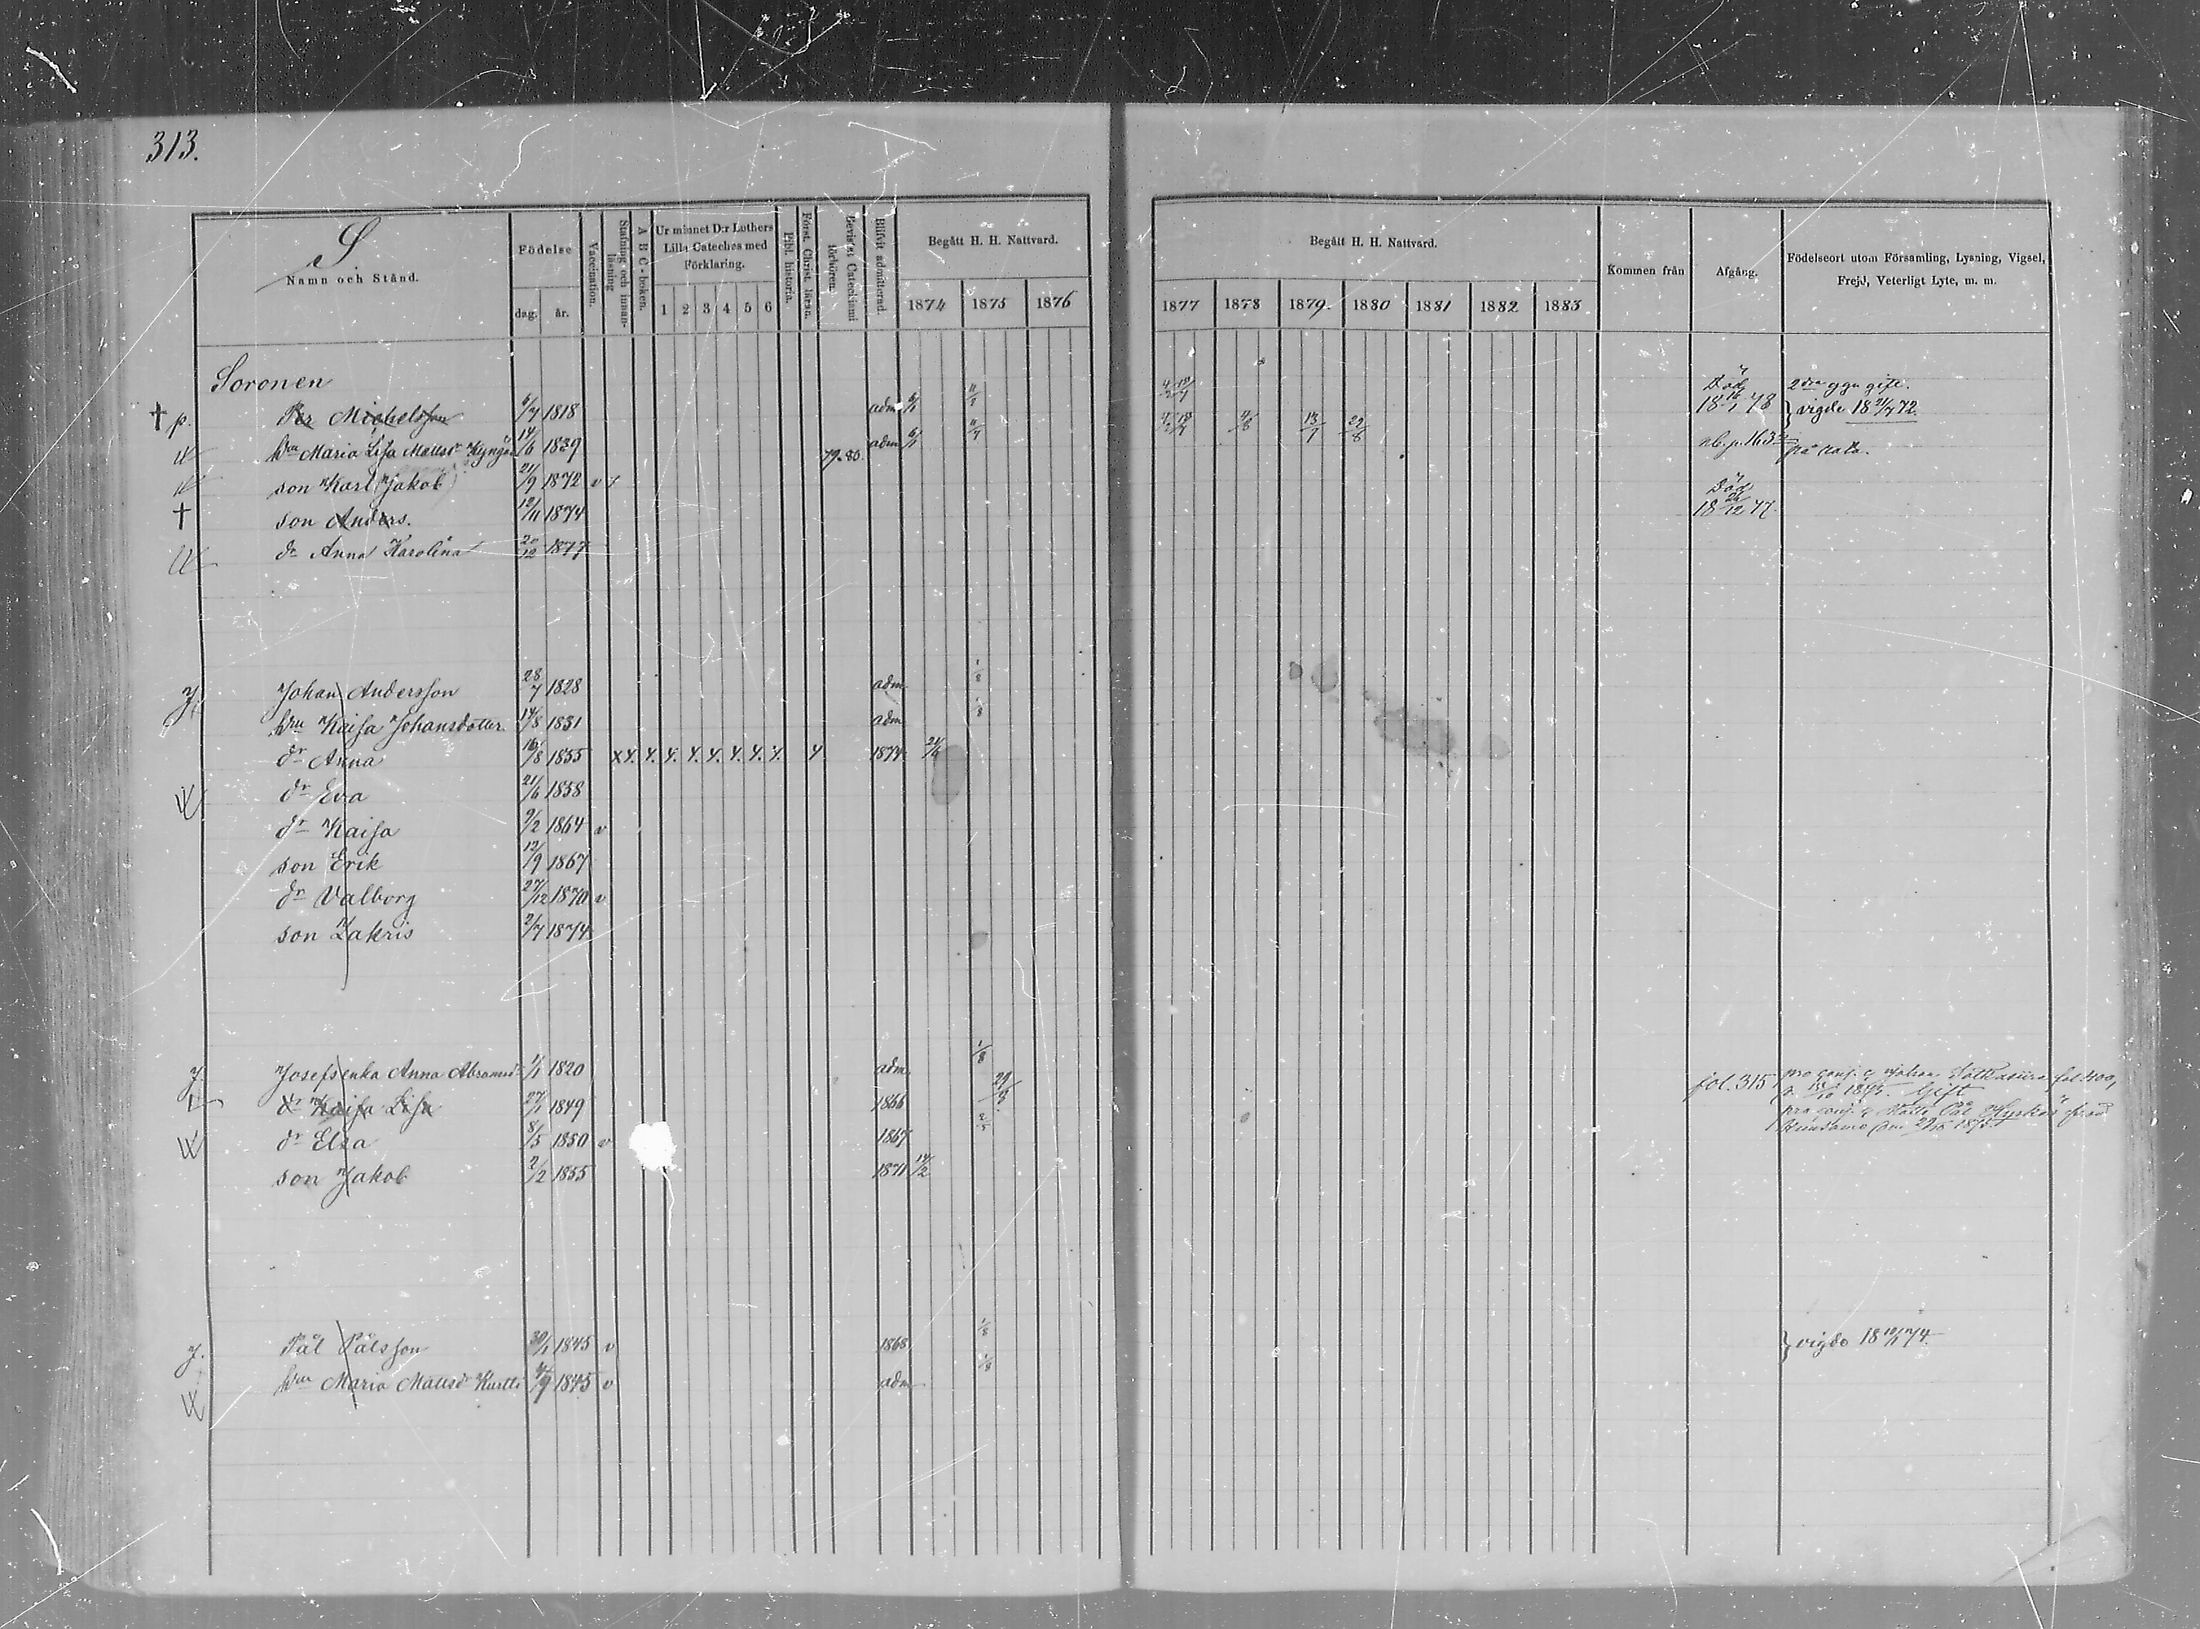 313.
S.
Namn och Stånd.
Födelse
dag.
år.
Vaccination.
Stafning och innan-
läsning
A B C-boken.
Ur minnet D:r Luthers
Lilla Cateches med
Förklaring.
1 2 3 4 5 6
Bibl. historia.
Först. Christ. läran.
Bevistat Catechismi
förhören.
Blifvit admitterad.
Begått H. H. Nattvard.
1874 1875 1876
Begått H. H. Nattvard.
1877 1878 1879 1880 1881 1882 1883
Kommen från
Afgång.
Födelseort utom Församling, Lysning, Vigsel,
Frejd, Veterligt Lyte, m. m.
Soronen
† p. Per Michelsson 6/7 1818 adm 6/1 11/7 4/2 18/7 Död 18 16/1 78 2dra ggn gift. vigde 18 21/7 72.
hru Maria Lisa Mattsdr 14/6 1839 79.80. adm 6/1 11/7 4/2 18/7 4/8 13/7 22/8 nb. p. 163
son Karl Jakob 21/9 1872 v
† son Anders. 12/11 1874 Död 18 26/12 77
dr Anna Karolina 20/12 1877
Johan Andersson 28/7 1828 adm. 1/8
hru Kaisa Johansdotter. 14/8 1831 adm 1/8
dr Anna 16/8 1855 1874 21/6
dr Eva 21/6 1858
dr Kaisa 9/2 1864 v
son Erik 12/9 1867
dr Valborg 27/12 1870 v
son Zakris 2/7 1874
J. Josefs enka Anna Abramsdr 1/1 1820 adm. 1/8
dr Kaisa Lisa 27/1 1849 1866 fol. 315 pro conj. c. Johan fol. 400,
1875. Gift
dr Elsa 8/5 1850 v 1867 pro conj. c. Matts Pål
1875
son Jakob 2/2 1855 1871 14/2
J. Pål Pålsson 30/1 1845 v 1868 1/8 vigde 18 18/1 74.
hru Maria Mattsdr Kurtti 4/9 1845 v adm 1/8